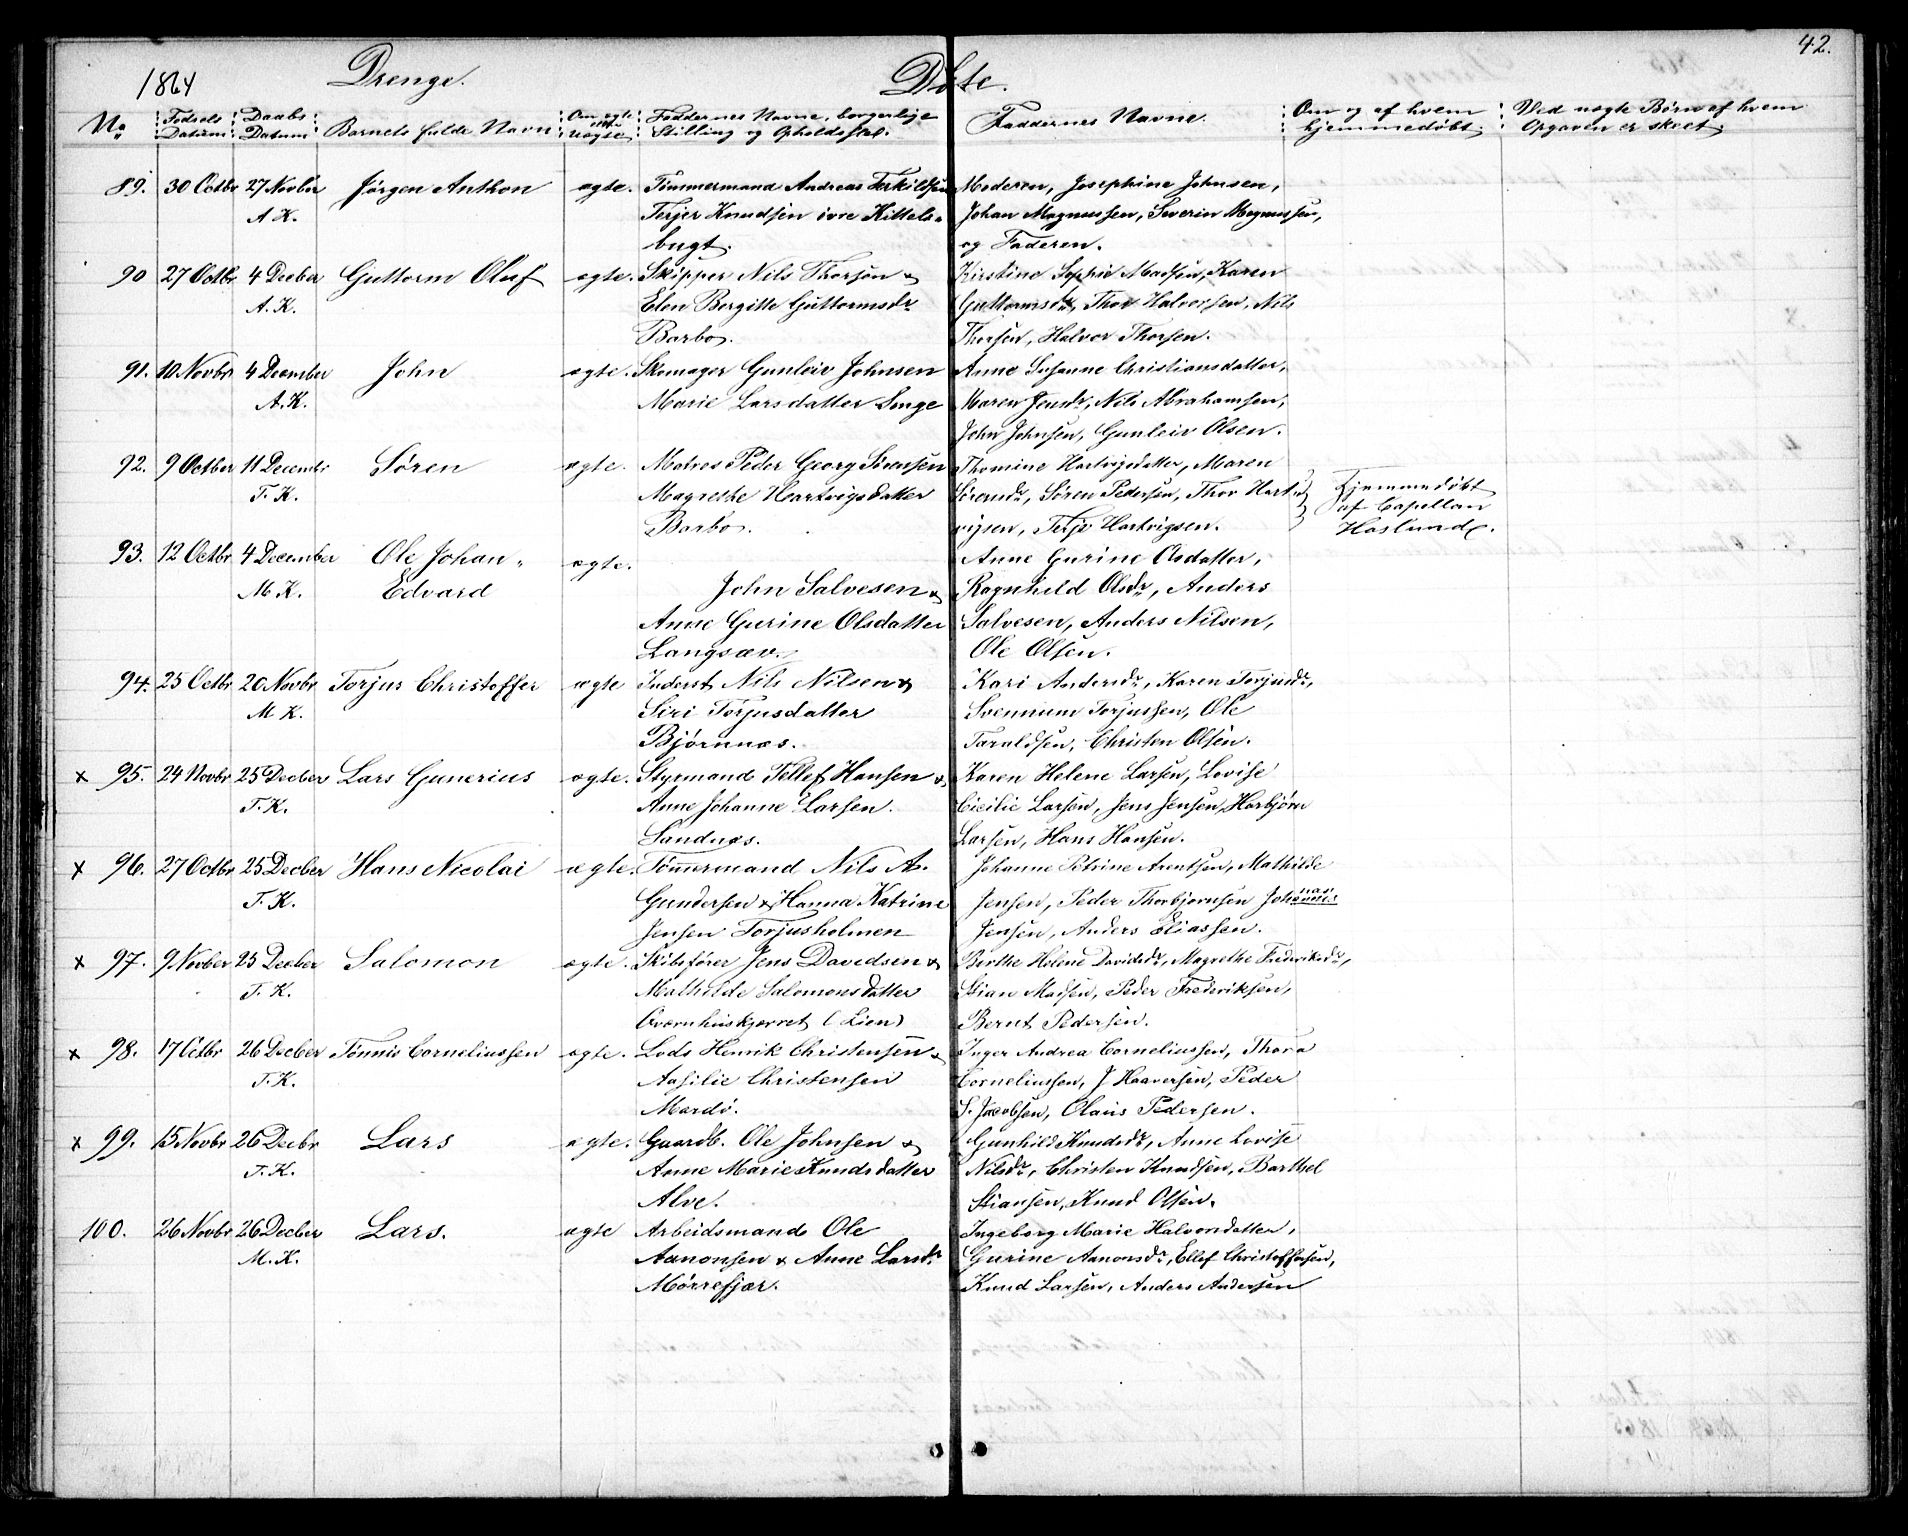 42.
1864 Drenge. Døbte.
No Fødsels Datum Daabs Datum Barnets fulde Navn Om ægte eller uægte Føddernes Navne, borgerlige Stilling og Opholdssted. Faddernes Navne. Om og af hvem hjemmedøbt. Ved uægte Børn af hvem Opgaven er skeet.
89. 30 Octbr 27 Novbr Jørgen Anthon ægte. Tømmermand Andreas Terkildsen Moderen, Josephine Johnsen,
A. K. Terjer Knudsen ivre Kittels- Johan Magnussen, Severin Magnussen,
bugt. og Faderen.
90 27 Octbr 4 Decber Guttorm Oluf ægte. Skipper Nils Thorsen & Kirstine Sophie Madsen, Karen
A. K. Elen Borgitte Guttormsdr Guttormsdr, Thor Halvorsen, Nils
Barbo. Thorsen, Halvor Thorsen.
91. 10 Novbr 4 December John ægte. Skomager Gunleiv Johnsen Anne Susanne Christiansdatter,
A. K. Marie Larsdatter Songe Maren Jensdr, Nils Abrahamsen,
John Johnsen, Gunleiv Olsen.
92. 9 Octber 11 Decembr Søren ægte. Matros Peder Georg Sørensen Thomine Hartvigsdatter, Maren
T. K. Magrethe Hartvigsdatter Sørensdr, Søren Pedersen, Thor Hart- Hjemmedøbt
Barbo. vigsen, Terje Hartvigsen. af Capellan
Haslund.
93. 12 Octbr 4 December Ole Johan ægte. Anne Gurine Olsdatter,
M. K. Edvard John Salvesen & Ragnhild Olsdr, Anders
Anne Gurine Olsdatter Salvesen, Anders Nilsen,
Langsæv. Ole Olsen.
94. 25 Octbr 20 Novbr Torjus Christoffer ægte Inderst Nils Nilsen & Kari Andersdr, Karen Torjusdr,
M. K. Siri Torjusdatter Svennum Torjussen, Ole
Bjørnnæs. Taraldsen, Christen Olsen.
x 95. 24 Novbr 25 Decber Lars Gunerius ægte. Styrmand Tellef Hansen & Karen Helene Larsen, Lovise
T. K. Anne Johanne Larsen. Cicilie Larsen, Jens Jensen, Harbjørn
Sandnæs. Larsen, Hans Hansen.
x 96. 27 Octbr 25 Decber Hans Nicolai ægte. Tømmermand Nils A. Johanne Petrine Arentsen, Mathilde
T. K. Gundersen & Hanna Katrine Jensen, Peder Thorbjørnsen Johannes
Jensen Torjusholmen Jensen, Anders Eliassen.
x 97. 9 Novber 25 Decber Salomon ægte. Skibsfører Jens Davidsen & Berthe Helene Davidsdr, Magrethe Frederiksdr,
T. K. Mathilde Salomonsdatter Stian Madsen, Peder Frederiksen,
Qværnhuskjærret (Lien) Bernt Pedersen.
x 98. 17 Octbr 26 Decber Tønnis Corneliussen ægte. Lods Henrik Christensen & Inger Andrea Corneliussen, Thora
T. K. Aasilie Christensen Corneliussen, J Haaversen, Peder
Mærdø. S. Jacobsen, Olaus Pedersen.
x 99. 15 Novbr 26 Decbr Lars ægte. Gaardb. Ole Johnsen & Gunhild Knudsdr, Anne Lovise
T. K. Anne Marie Knudsdatter Nilsdr, Christen Knudsen, Barthel
Alve. Stiansen, Knud Olsen.
100. 26 Novbr 26 Decber Lars. ægte Arbeidsmand Ole Ingeborg Marie Halvorsdatter,
M. K. Aanonsen & Anne Larsdr Gurine Aanonsdr, Ellef Christoffersen,
Mørrefjær. Knud Larsen, Anders Andersen